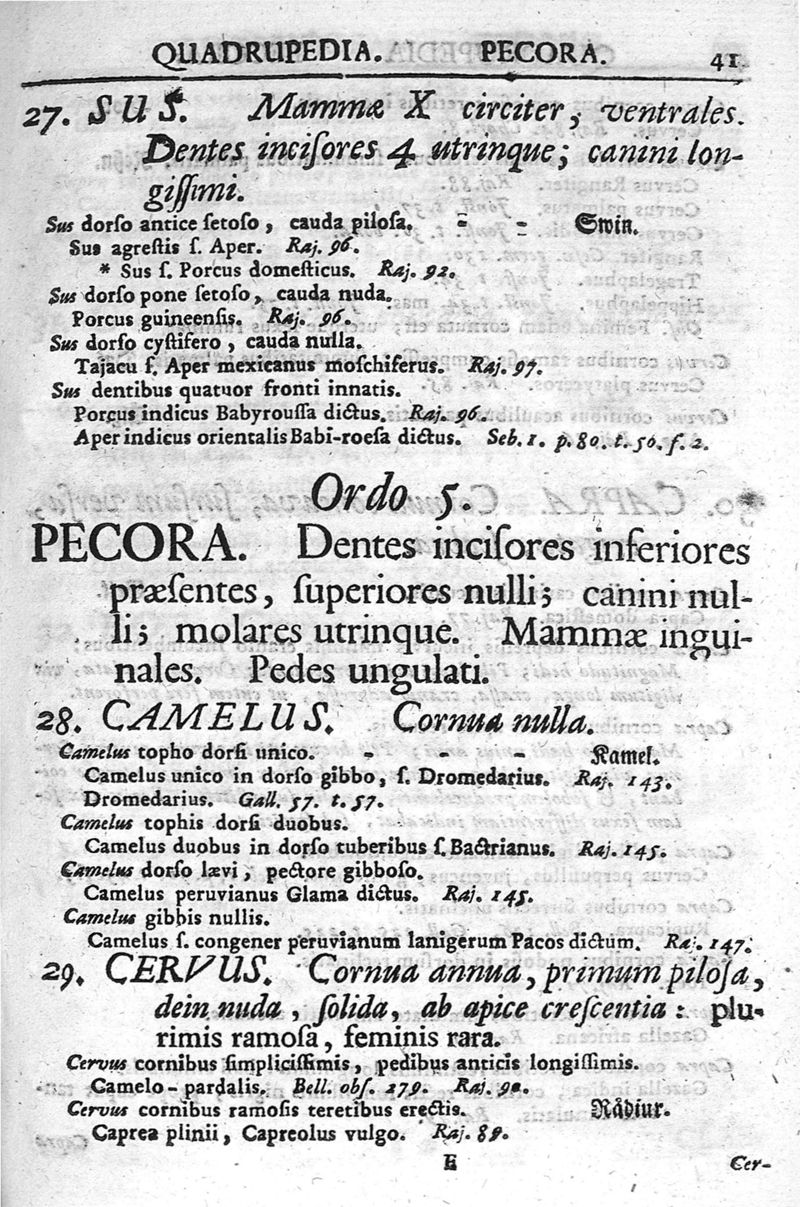 QUADRUPEDIA. PECORA. 41
27. SUS. Mammæ X circiter, ventrales.
Dentes inciſores 4 utrinque; canini lon-
giſſimi.
Sus dorſo antice ſetoſo, cauda piloſa. - - Swin.
Sus agreſtis ſ. Aper. Raj. 96.
* Sus ſ. Porcus domeſticus. Raj. 92.
Sus dorſo pone ſetoſo, cauda nuda.
Porcus guineenſis. Raj. 96.
Sus dorſo cyſtifero, cauda nulla.
Tajacu ſ. Aper mexicanus moſchiferus. Raj. 97.
Sus dentibus quatuor fronti innatis.
Porcus indicus Babyrouſſa dictus. Raj. 96.
Aper indicus orientalis Babi-roeſa dictus. Seb. 1. p. 80. t. 50. f. 2.
Ordo 5.
PECORA. Dentes inciſores inferiores
præſentes, ſuperiores nulli; canini nul-
li; molares utrinque. Mammæ ingui-
nales. Pedes ungulati.
28. CAMELUS. Cornua nulla.
Camelus topho dorſi unico. - - - Kamel.
Camelus unico in dorſo gibbo, ſ. Dromedarius. Raj. 143.
Dromedarius. Gall. 57. t. 57.
Camelus tophis dorſi duobus.
Camelus duobus in dorſo tuberibus ſ. Bactrianus. Raj. 145.
Camelus dorſo lævi, pectore gibboſo.
Camelus peruvianus Glama dictus. Raj. 145.
Camelus gibbis nullis.
Camelus ſ. congener peruvianum lanigerum Pacos dictum. Raj. 147.
29. CERVUS. Cornua annua, primum piloſa,
dein nuda, ſolida, ab apice creſcentia: plu-
rimis ramoſa, feminis rara.
Cervus cornibus ſimpliciſſimis, pedibus anticis longiſſimis.
Camelo-pardalis. Bell. obſ. 279. Raj. 90.
Cervus cornibus ramoſis teretibus erectis. Rådiur.
Caprea plinii, Capreolus vulgo. Raj. 89.
E Cer-